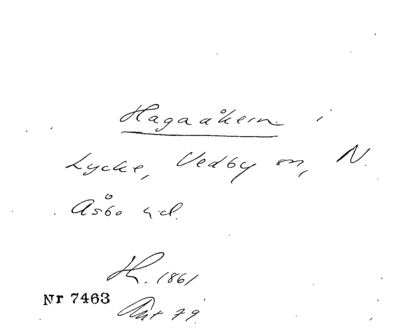 Hagaåkern i
Lycke, Vedby sn, N.
Åsbo hd.
H. 1861
Nr 7463
Ant 79